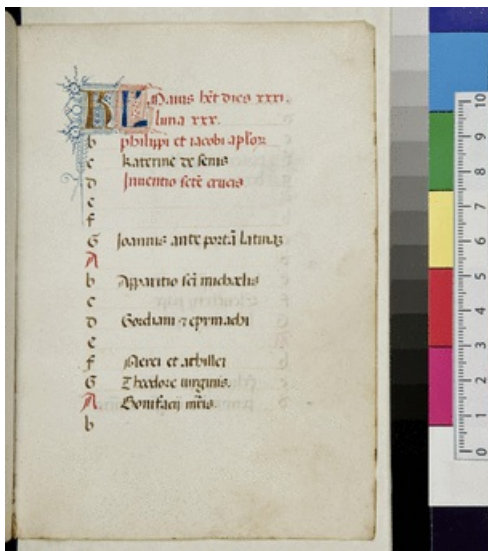 KL Maius h̅t dies xxxi.
luna xxx.
b philippi et iacobi apl'oꝝ
c katerine de senis
d Inuentio scte crucis
e
f
G Joannis ante portã latinaz
A
b Apparitio sci michaelis
c
d Gordiani ⁊ epymachi
e
f Nerei et archillei
G Theodore uirginis.
A Bonifacij mr̃is.
b
10
9
8
7
6
5
4
3
2
1
0